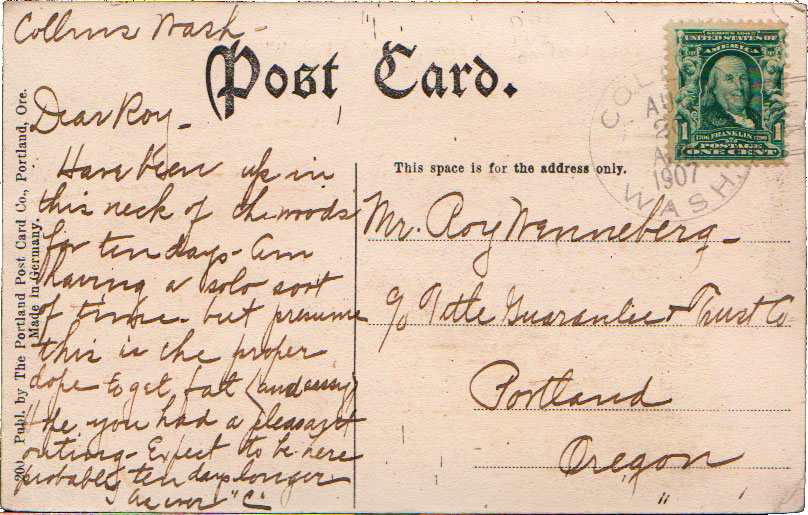 Collins Wash-
Post Card.
Dear Roy-
Have been up in
this neck of the woods
for ten days- am
having a solo sort
of time- but presume
this is the proper
dope to get fat (and
Hope you had a pleasant
outing- Expect to be here
probably ten days longer
As ever "C"
201 Publ. by The Portland Post Card Co., Portland, Ore.
Made in Germany.
This space is for the address only.
Mr. Roy Wenneberg-
c/o Title Guarantee & Trust Co
Portland
Oregon
" "
COL
AU
2
A
1907
WASH.
SERIES 1902
UNITED STATES OF
AMERICA
1706 FRANKLIN 1790
1 1
POSTAGE
ONE CENT